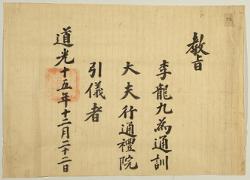 敎旨
李龍九爲通訓
大夫行通禮院
引儀者
道光十五年十二月二十二日